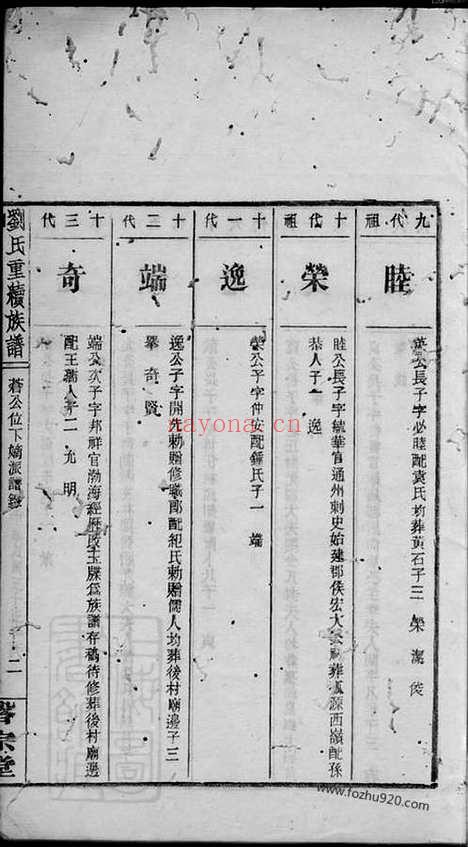 九代祖
睦
萬公長子字必睦配袁氏均葬黃石子三 榮 潔 俊
十代祖
榮
睦公長子字毓華官通州刺史始建郡侯宏大葬源西嶺配孫
恭人子一 逸
十一代
逸
榮公子字仲安配鍾氏子一 端
十二代
端
逸公子字開先勅贈修職郎配紀氏勅贈儒人均葬後村廟邊子三
舉 奇 賢
十三代
奇
端公次子字邦祥官渤海經歷改玉牒為族譜存稿待修葬後村廟邊
配王孺人子二 允 明
劉氏重續族譜
蒼公位下嫡派譜錄
二
宗堂
nayona.cn
www.fozhu920.com